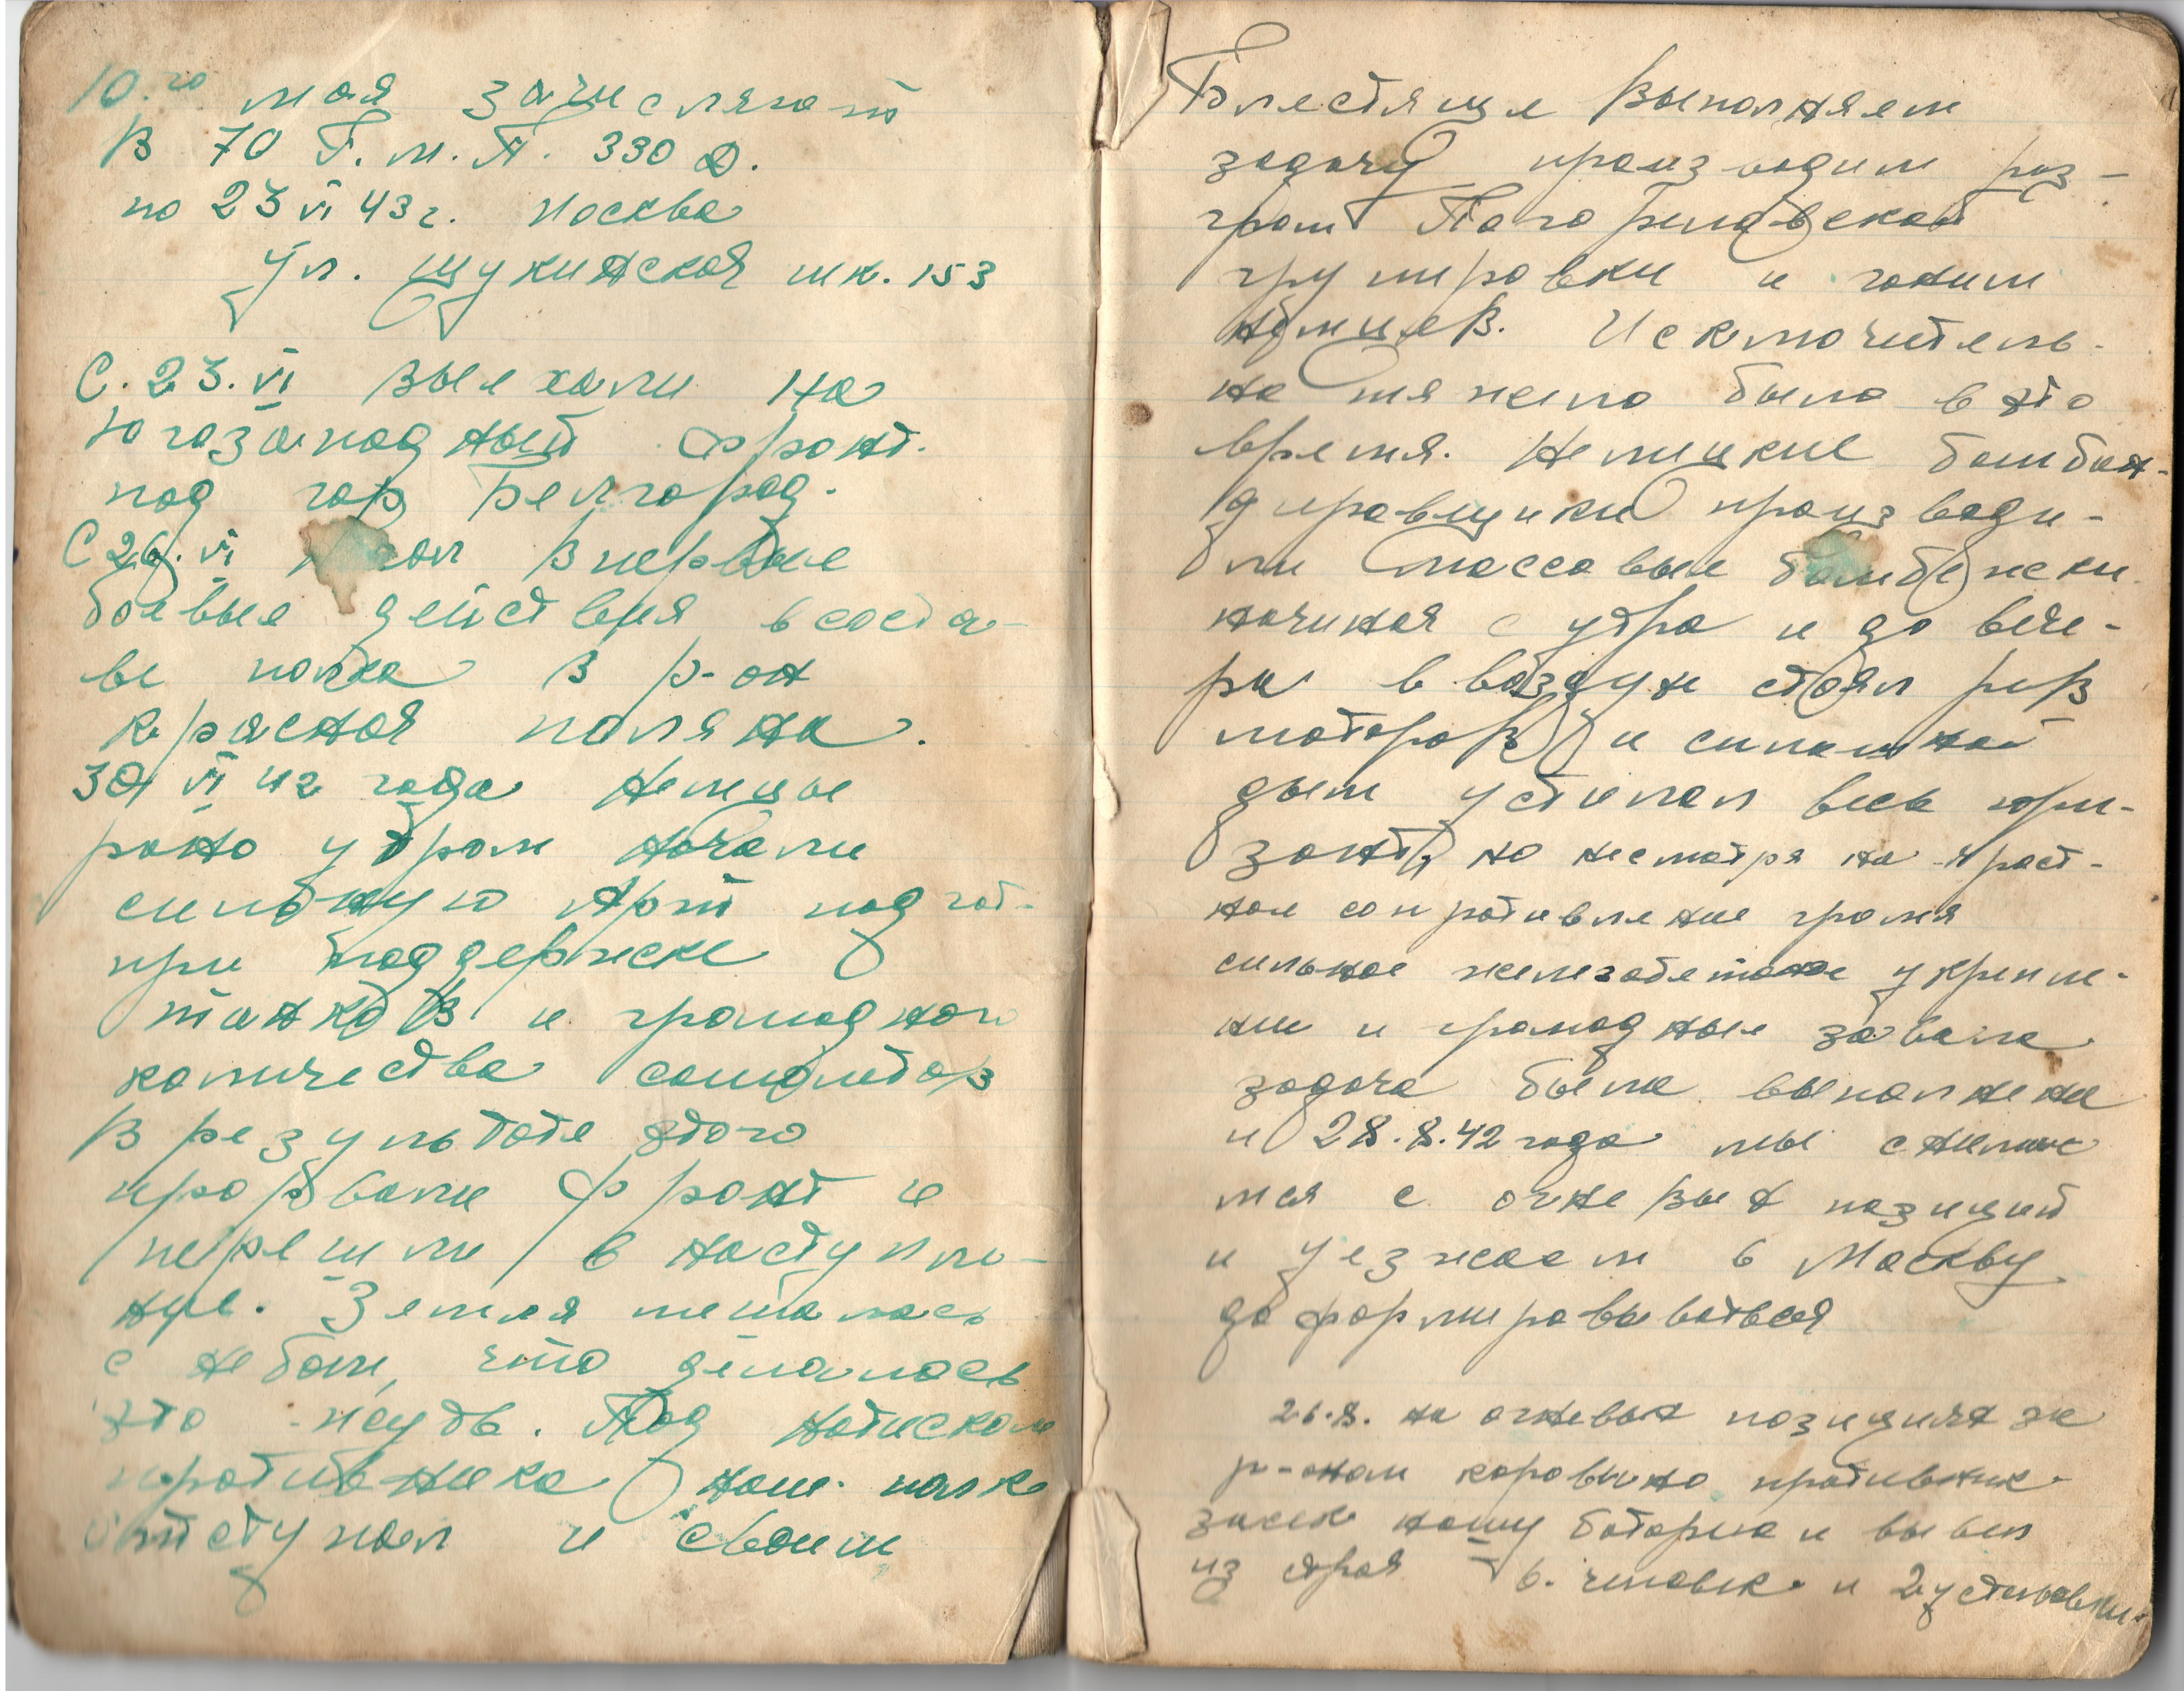 10.го мая зачисляют
в 70 Г.М.П. 330 д.
по 23 VI 43 г. Москва
ул. Щукинская шк. 153
С. 23. VI выехали на
югозападный фронт.
под гор Белгород.
С 26. VI впервые
боевые действия в соста-
ве полка в р-он
красная поляна.
30 VI 42 года Немцы
рано утром начали
сильную Арт подгот-
при поддержке
танков и громадного
количества самолётов
В результате этого
прорвали фронт и
перешли в наступле-
ние. Земля мешалась
с небом, что делалось
это жуть. Под натиском
противника наш полк
отступал и своим
Блестяще выполняем
задачу производим раз-
гром Погореловской
групировки и гоним
немцев. Исключитель-
но тяжело было в это
время. Немецкие бомбан-
дировщики производи-
ли массовые бомбёжки
начиная с утра и до вече-
ра в воздухе стоял рёв
моторов и сплошной
дым устилал весь гори-
зонт, но несмотря на яраст-
ное сопротивление громя
сильное железобетоное укрепле-
ния и громадные завала
задача была выполнена
и 28.8.42 года мы снимае
мся с огневых позиций
и уезжаем в Москву
доформировываться
26.8. на огневых позициях за
р-оном коровино противник
засек нашу батарею и вывел
из строя 6. человек и 2 установки.